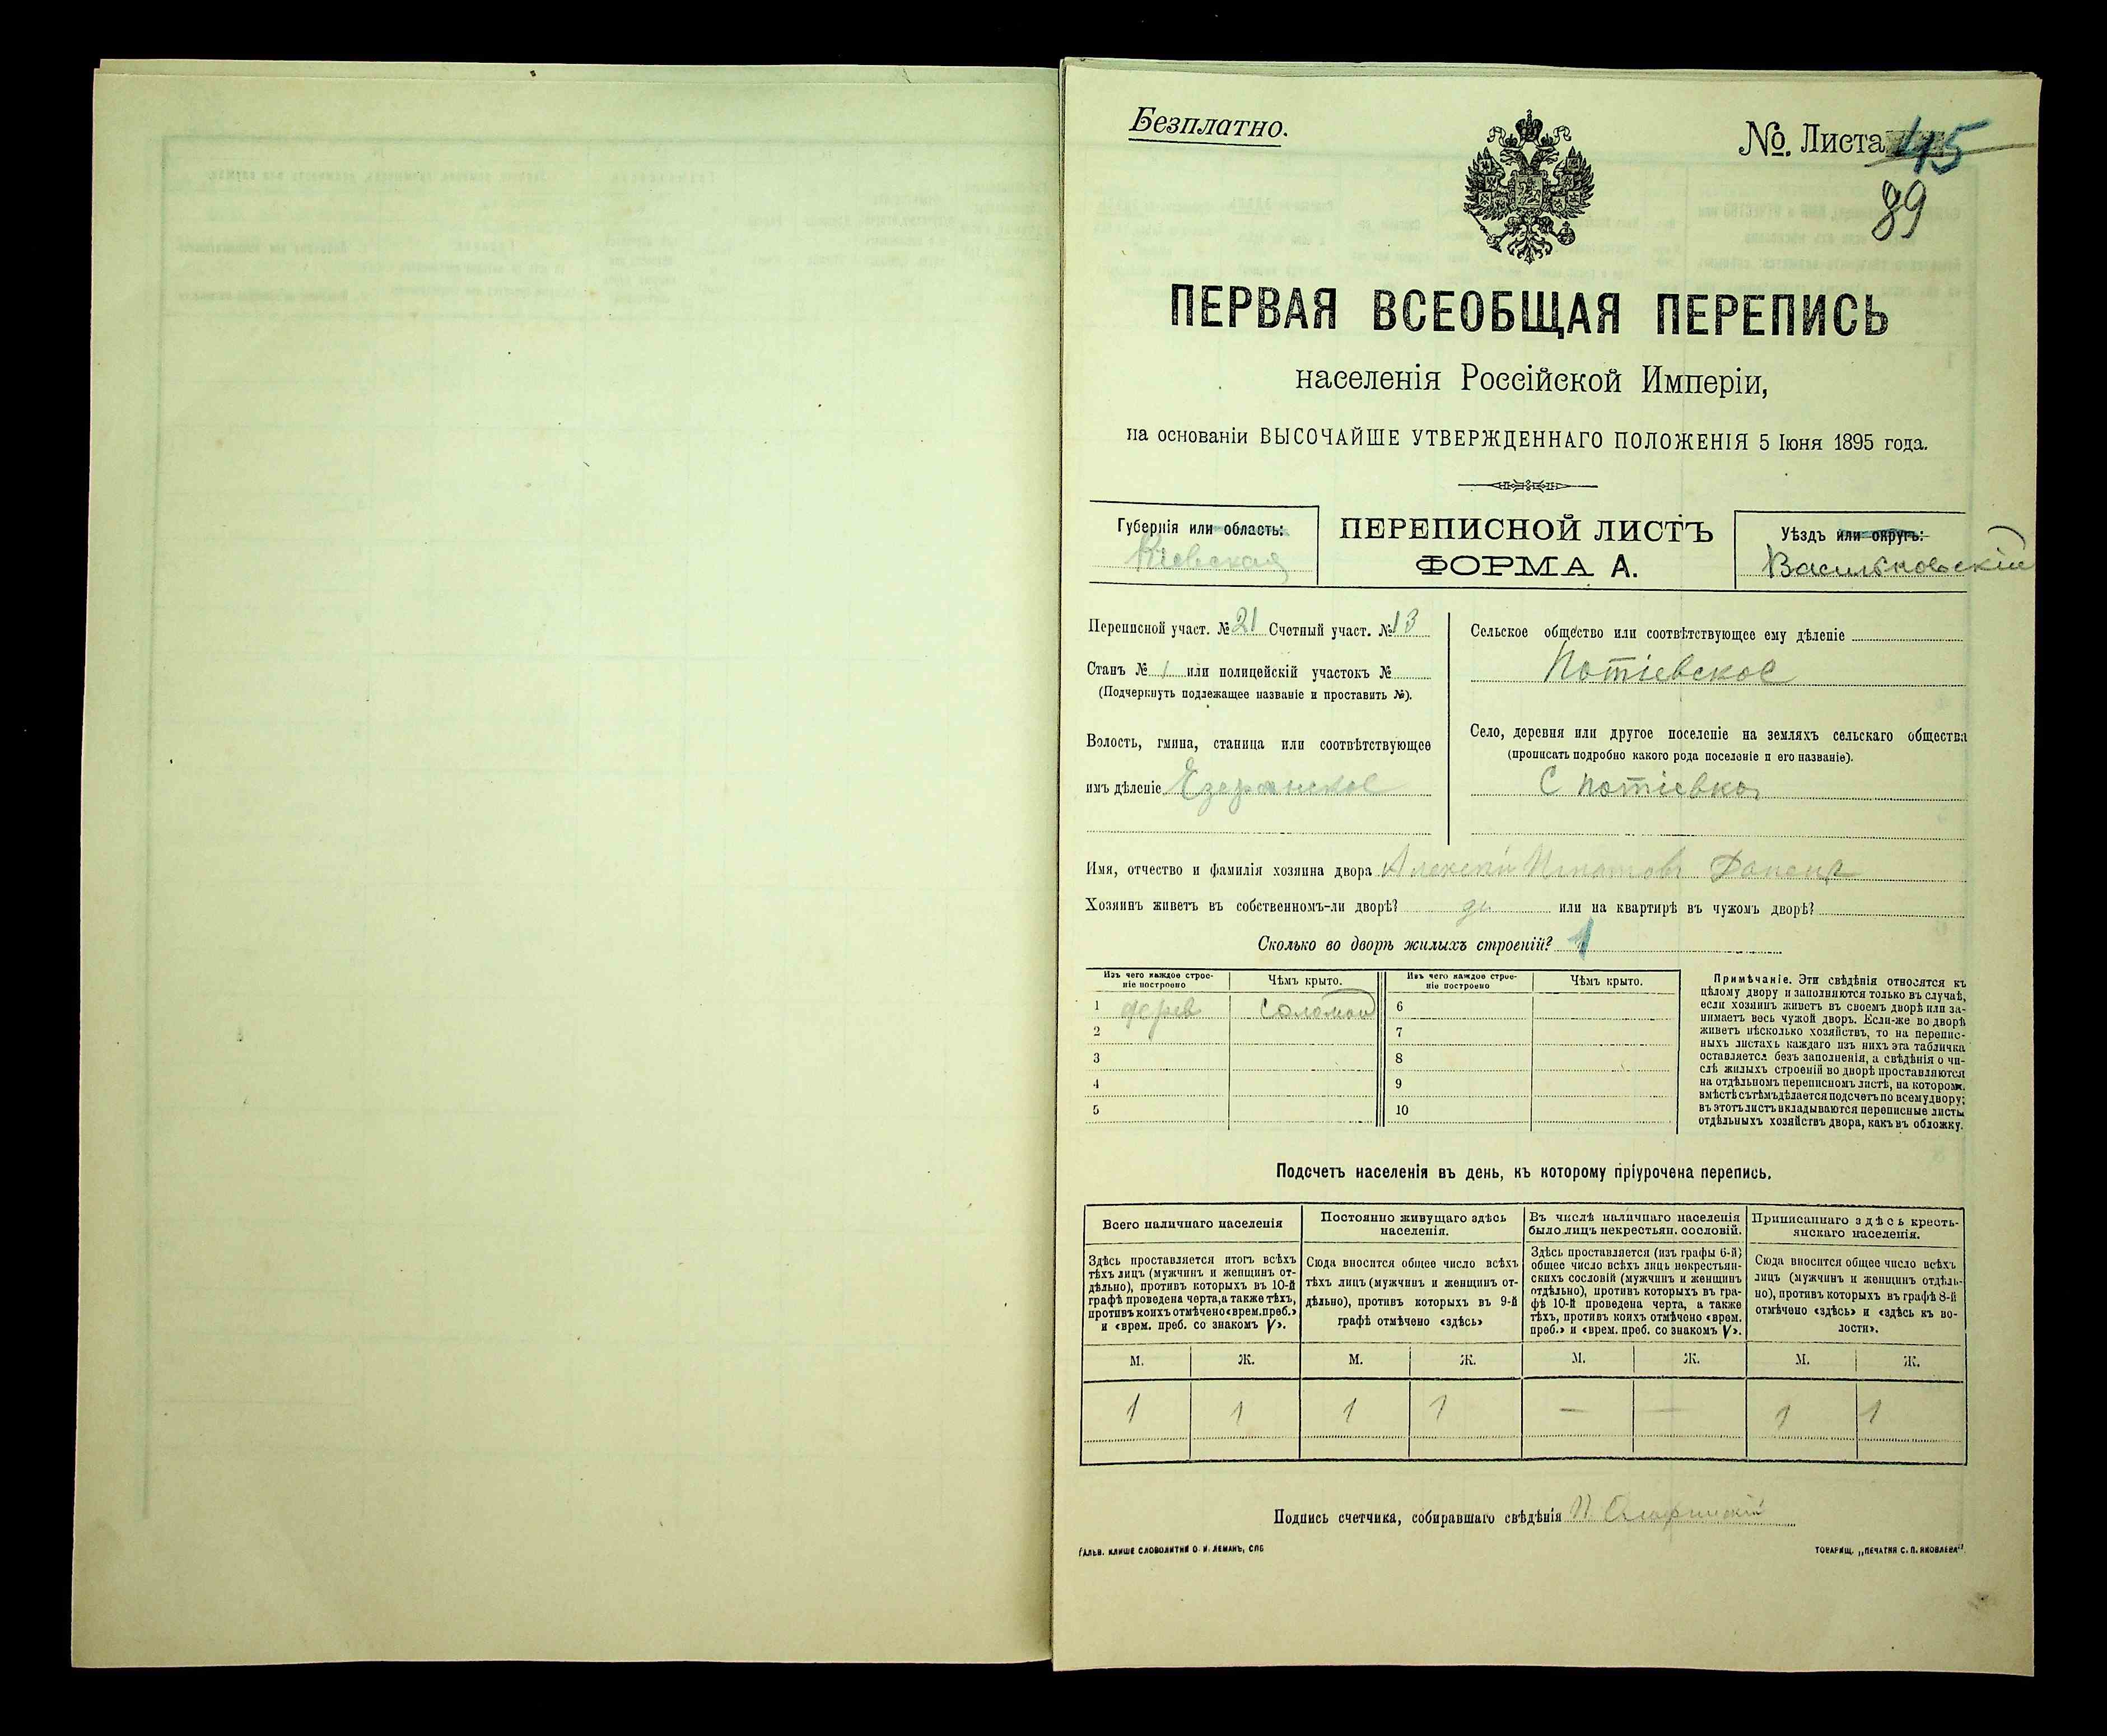 Безплатно.
№. Листа 45
89
ПЕРВАЯ ВСЕОБЩАЯ ПЕРЕПИСЬ
населенія Россійской Имперіи,
на основаніи ВЫСОЧАЙШЕ УТВЕРЖДЕННАГО ПОЛОЖЕНІЯ 5 Іюня 1895 года.
Губернія или область:
Кіевская
ПЕРЕПИСНОЙ ЛИСТЪ
ФОРМА А.
Уѣздъ или округъ:
Васильковскій
Переписной участ. № 21 Счетный участ. № 13
Станъ № 1 или полицейскій участокъ №
(Подчеркнуть подлежащее названіе и проставить №).
Волость, гмина, станица или соотвѣтствующее
имъ дѣленіе Езерянское
Сельское общество или соотвѣтствующее ему дѣленіе
Потіевское
Село, деревня или другое поселеніе на земляхъ сельскаго общества
(прописать подробно какого рода поселеніе и его названіе).
С Потіевка
Имя, отчество и фамилія хозяина двора Алексѣй
Хозяинъ живетъ въ собственномъ-ли дворѣ? да или на квартирѣ въ чужомъ дворѣ?
Сколько во дворѣ жилыхъ строеній? 1
Изъ чего каждое строе-
ніе построено
Чѣмъ крыто.
Изъ чего каждое строе-
ніе построено
Чѣмъ крыто.
1 дерев соломой 6
2 7
3 8
4 9
5 10
Примѣчаніе. Эти свѣдѣнія относятся къ
цѣлому двору и заполняются только въ случаѣ,
если хозяинъ живетъ въ своемъ дворѣ или за-
нимаетъ весь чужой дворъ. Если-же во дворѣ
живетъ нѣсколько хозяйствъ, то на перепис-
ныхъ листахъ каждаго изъ нихъ эта табличка
оставляется безъ заполненія, а свѣдѣнія о чи-
слѣ жилыхъ строеній во дворѣ проставляются
на отдѣльномъ переписномъ листѣ, на которомъ
вмѣстѣ съ тѣмъ дѣлается подсчетъ по всему двору;
въ этотъ листъ вкладываются переписные листы
отдѣльныхъ хозяйствъ двора, какъ въ обложку.
Подсчетъ населенія въ день, къ которому пріурочена перепись.
Всего наличнаго населенія
Здѣсь проставляется итогъ всѣхъ
тѣхъ лицъ (мужчинъ и женщинъ от-
дѣльно), противъ которыхъ въ 10-й
графѣ проведена черта, а также тѣхъ,
противъ коихъ отмѣчено «врем. преб.»
и «врем. преб. со знакомъ V».
Постоянно живущаго здѣсь
населенія.
Сюда вносится общее число всѣхъ
тѣхъ лицъ (мужчинъ и женщинъ от-
дѣльно), противъ которыхъ въ 9-й
графѣ отмѣчено «здѣсь»
Въ числѣ наличнаго населенія
было лицъ некрестьян. сословій.
Здѣсь проставляется (изъ графы 6-й)
общее число всѣхъ лицъ некрестьян-
скихъ сословій (мужчинъ и женщинъ
отдѣльно), противъ которыхъ въ гра-
фѣ 10-й проведена черта, а также
тѣхъ, противъ коихъ отмѣчено «врем.
преб.» и «врем. преб. со знакомъ V».
Приписаннаго здѣсь кресть-
янскаго населенія.
Сюда вносится общее число всѣхъ
лицъ (мужчинъ и женщинъ отдѣль-
но), противъ которыхъ въ графѣ 8-й
отмѣчено «здѣсь» и «здѣсь къ во-
лости».
М. Ж. М. Ж. М. Ж. М. Ж.
1 1 1 1 — — 1 1
Подпись счетчика, собиравшаго свѣдѣнія
ГАЛЬВ. КЛИШЕ СЛОВОЛИТНИ О. И. ЛЕМАНЪ, СПБ
ТОВАРИЩ. „ПЕЧАТНЯ С. П. ЯКОВЛЕВА".